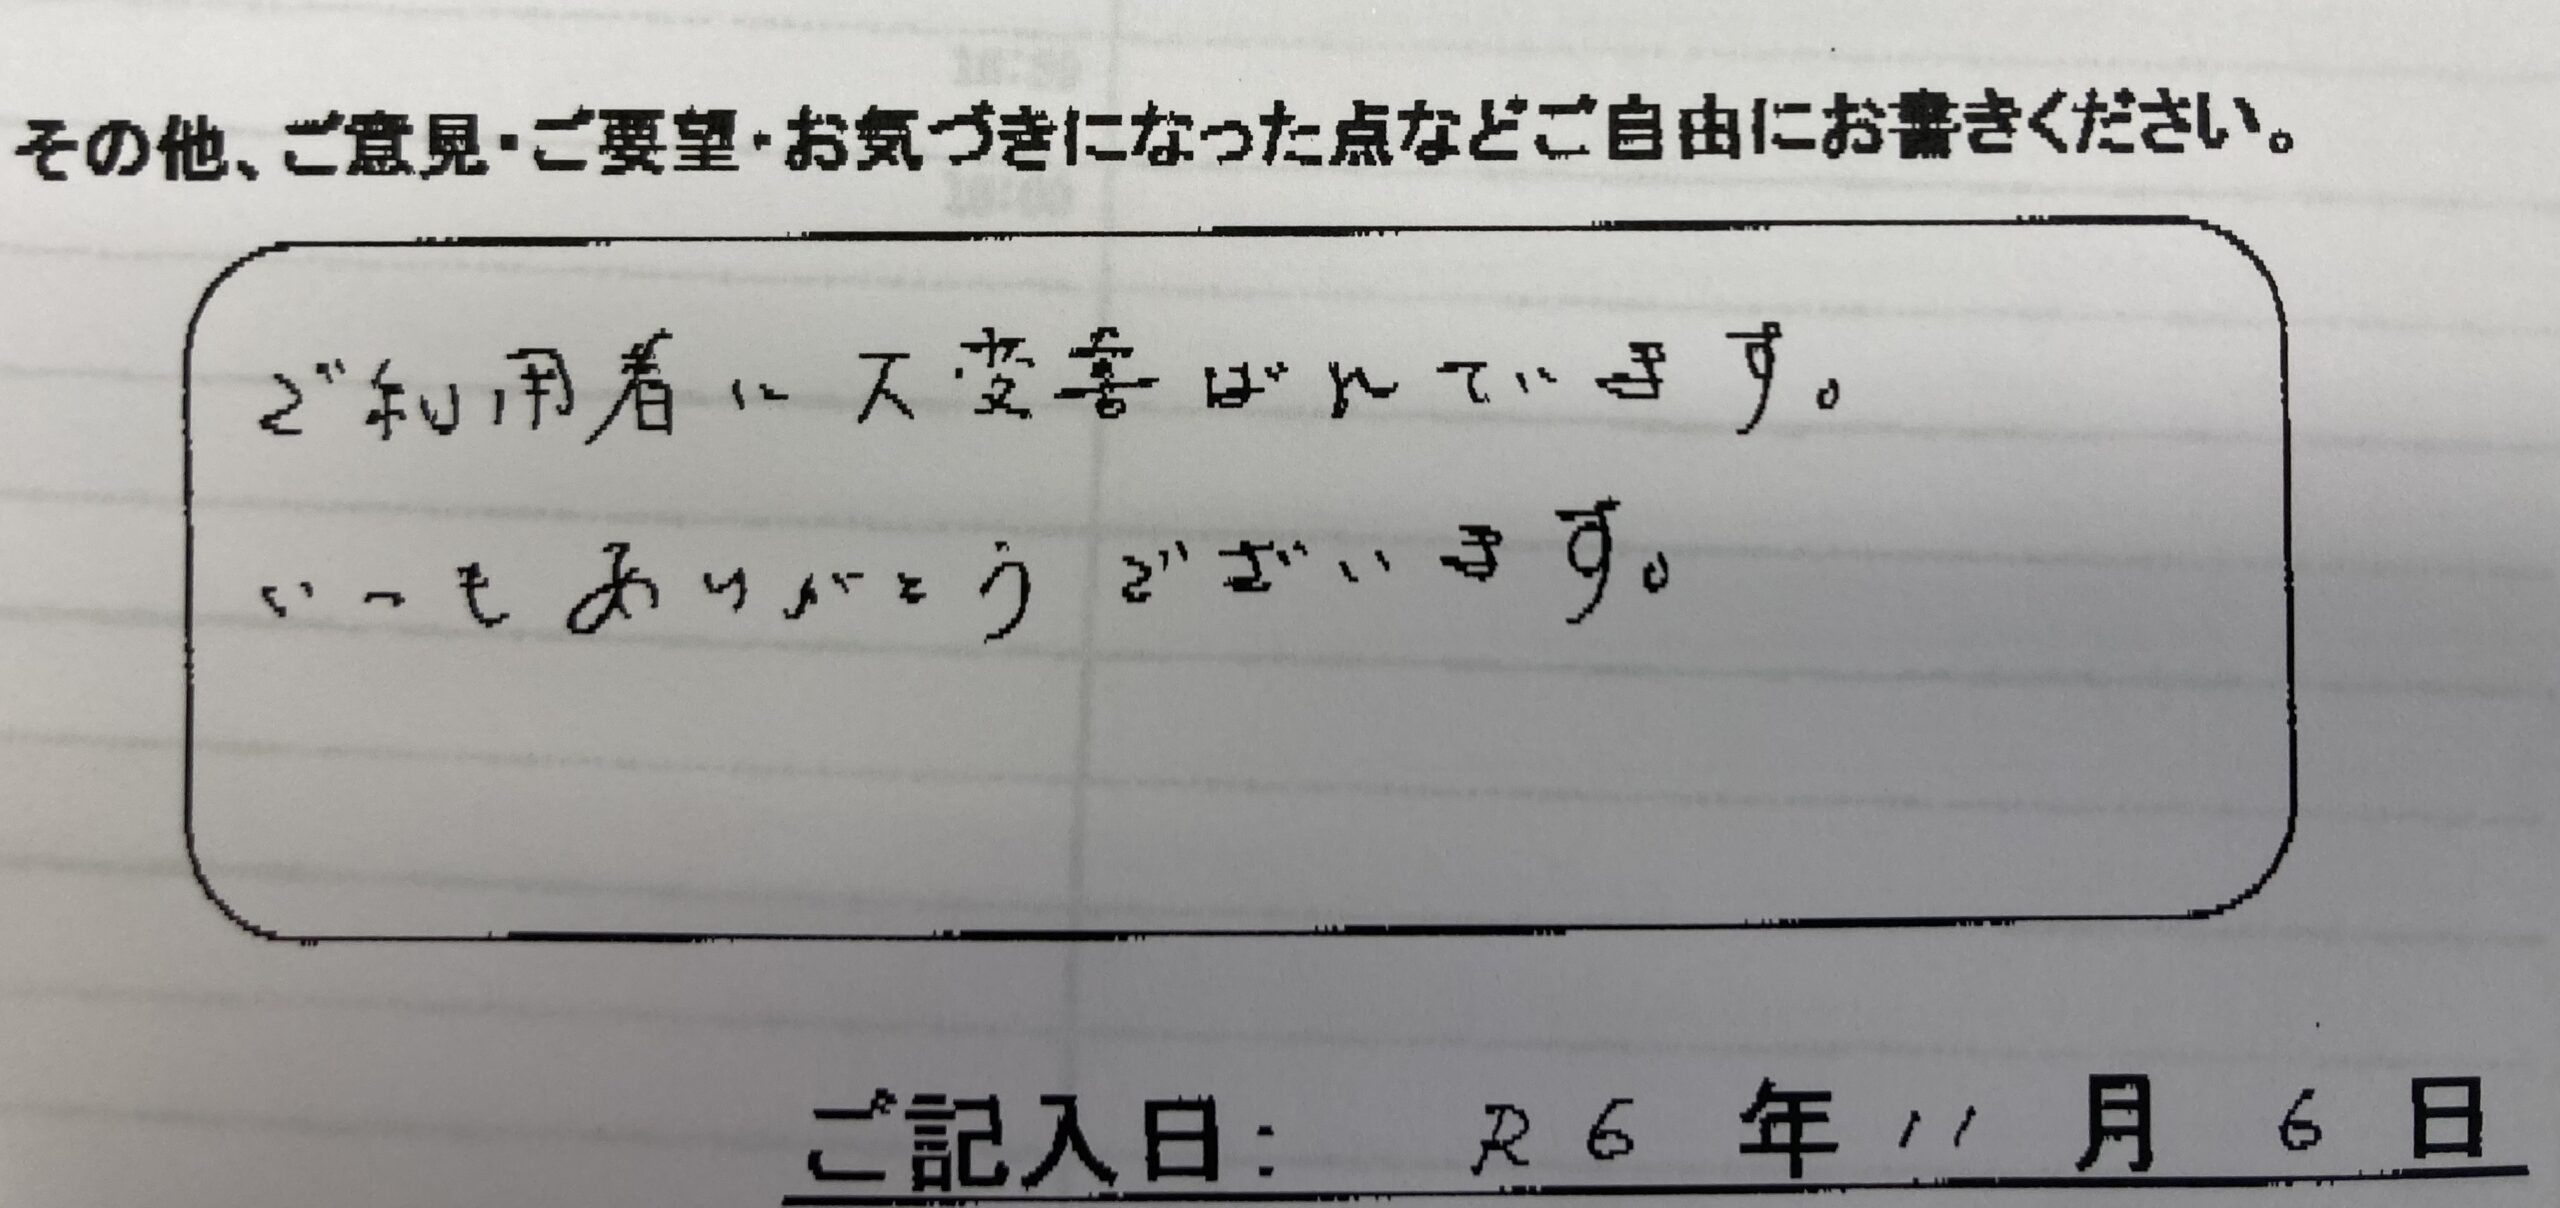 その他、ご意見・ご要望・お気づきになった点などご自由にお書きください。
ご利用者に大変喜ばれています。
いつもありがとうございます。
ご記入日: R6年11月6日